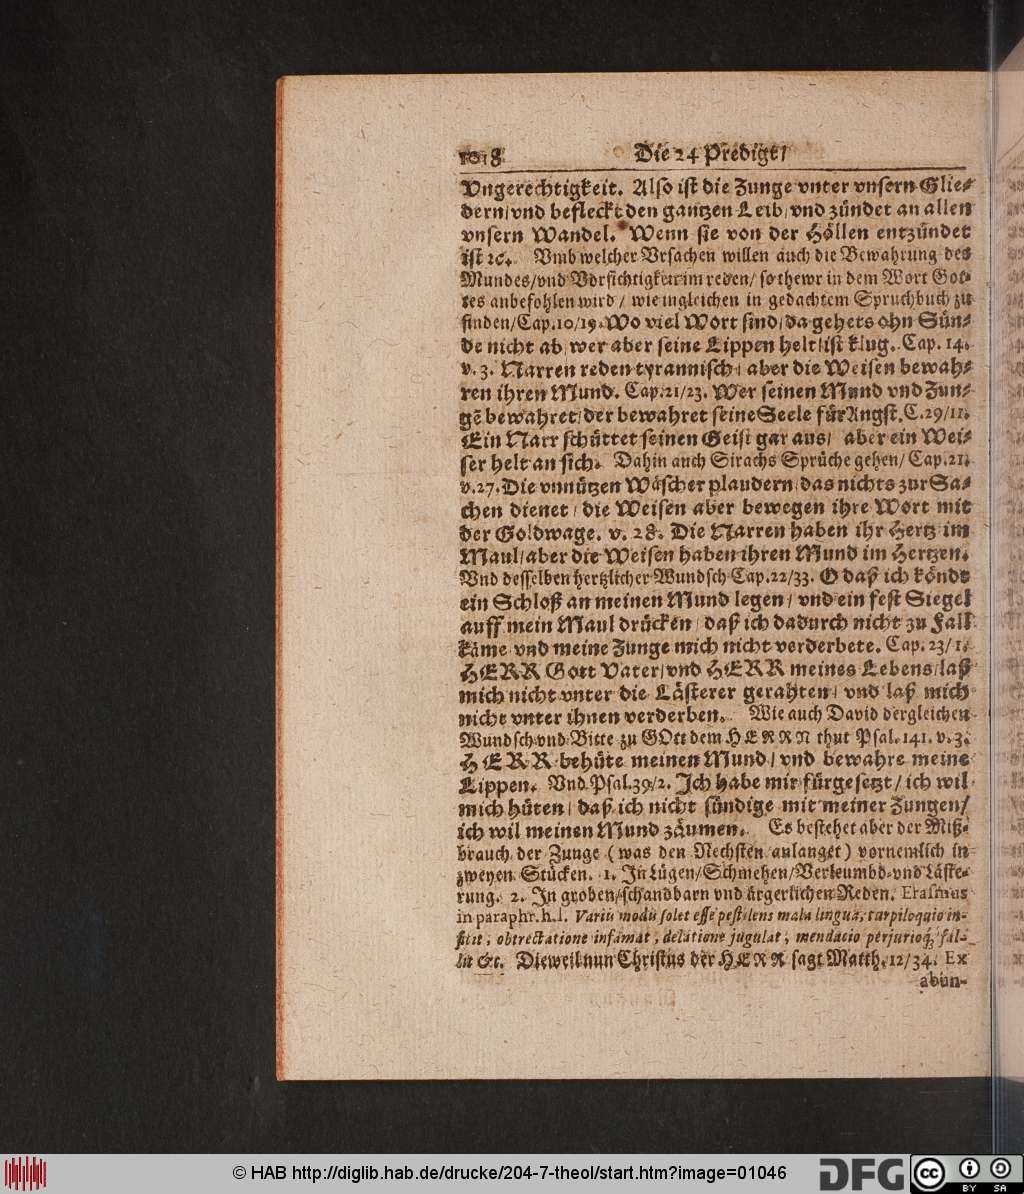 1018 Die 24 Predigt/
Vngerechtigkeit. Also ist die Zunge vnter vnsern Glie-
dern/vnd befleckt den gantzen Leib/vnd zündet an allen
vnsern Wandel. Wenn sie von der Höllen entzündet
ist ꝛc. Vmb welcher Vrsachen willen auch die Bewahrung des
Mundes/vnd Vorsichtigkeit im reden/ so thewr in dem Wort Got-
tes anbefohlen wird/ wie ingleichen in gedachtem Spruchbuch zu
finden/Cap.10/19. Wo viel Wort sind/da gehets ohn Sün-
de nicht ab/wer aber seine Lippen helt/ist klug. Cap. 14.
v.3. Narren reden tyrannisch/ aber die Weisen bewah-
ren ihren Mund. Cap.21/23. Wer seinen Mund vnd Zun-
gē bewahret/der bewahret seine Seele für Angst. C.29/11.
Ein Narr schüttet seinen Geist gar aus/ aber ein Wei-
ser helt an sich. Dahin auch Sirachs Sprüche gehen/ Cap.21.
v.27. Die vnnützen Wäscher plaudern/das nichts zur Sa-
chen dienet/ die Weisen aber bewegen ihre Wort mit
der Goldwage. v. 28. Die Narren haben ihr Hertz im
Maul/aber die Weisen haben ihren Mund im Hertzen.
Vnd desselben hertzlicher Wundsch Cap.22/33. O daß ich könde
ein Schloß an meinen Mund legen/ vnd ein fest Siegel
auff mein Maul drücken/ daß ich dadurch nicht zu Fall
käme/vnd meine Zunge mich nicht verderbete. Cap.23/1.
HERR Gott Vater/vnd HERR meines Lebens/laß
mich nicht vnter die Lästerer gerahten/ vnd laß mich
nicht vnter ihnen verderben. Wie auch David dergleichen
Wundsch vnd Bitte zu GOtt dem HERRN thut Psal.141.v.3.
HERR behüte meinen Mund/ vnd bewahre meine
Lippen. Vnd Psal.39/2. Ich habe mir fürgesetzt/ ich wil
mich hüten/ daß ich nicht sündige mit meiner Zungen/
ich wil meinen Mund zäumen. Es bestehet aber der Miß-
brauch der Zunge (was den Nechsten anlanget) vornemlich in
zweyen Stücken. 1. In Lügen/Schmehen/Verleumbd-vnd Läste-
rung. 2. In groben/schandbarn vnd ärgerlichen Reden. Erasmus
in paraphr.h.l. Variis modis solet esse pestilens mala lingua, turpiloquio in-
ficit, obtrectatione infamat, delatione jugulat, mendacio perjurioq; fal-
lit &c. Dieweil nun Christus der HERR sagt Matth.12/34. Ex
abun-
© HAB http://diglib.hab.de/drucke/204-7-theol/start.htm?image=01046
DFG
cc
BY SA